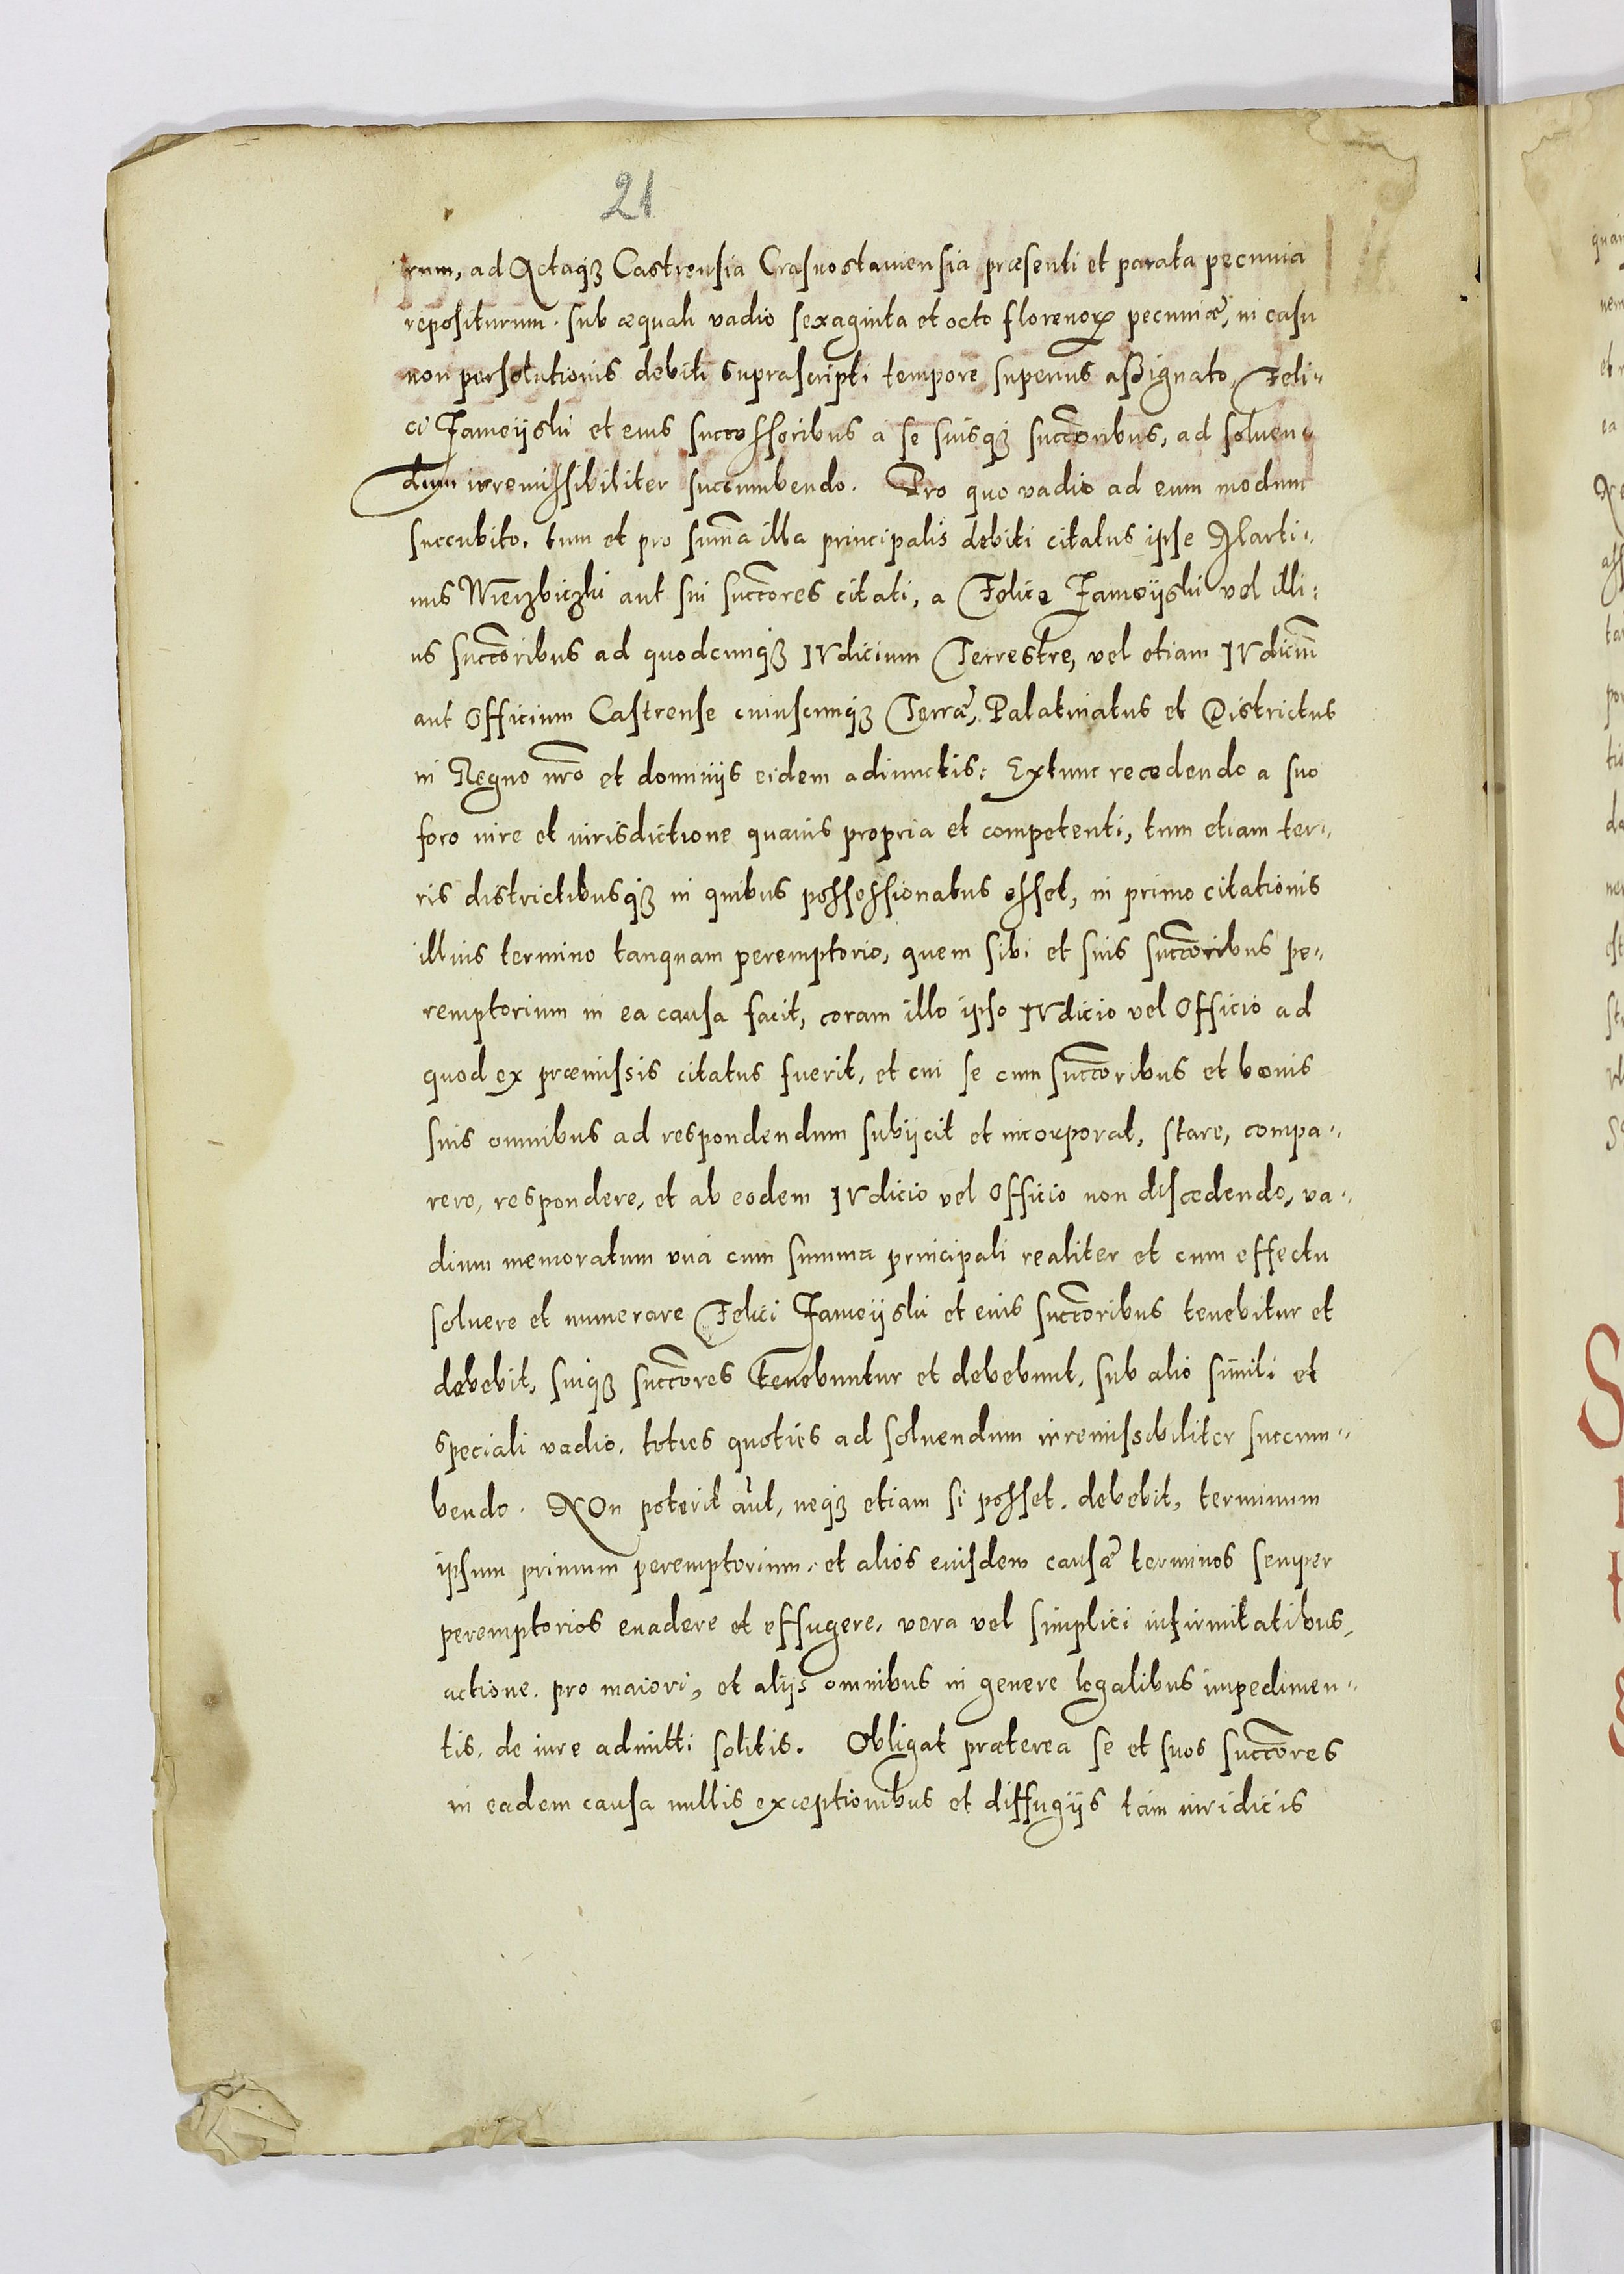 21
rum, ad Actaqȝ Castrensia Crasnostauiensia præsenti et parata pecunia
repositurum. sub æquali vadio sexaginta et octo florenoꝝ pecuniæ, in casu
non persolutionis debiti suprascripti tempore superius assignato, Feli„
ci Jameijski et eius successoribus a se suisqȝ succōribus, ad soluen„
dum irremissibiliter succumbendo. Pro quo vadio ad eum modum
succubito, tum et pro sum̄a illa principalis debiti citatus ipse Marti„
nus Wierzbiczki aut sui succōres citati, a Felice Jameijski vel illi„
us succōribus ad quodcunqȝ IVdicium Terrestre, vel etiam IVdiciū
aut Officium Castrense cuiuscunqȝ Terræ, Palatinatus et Districtus
in Regno nr̄o et dominijs eidem adiunctis: Extunc recedendo a suo
foro iure et iurisdictione quauis propria et competenti, tum etiam ter„
ris districtibusqȝ in quibus possessionatus esset, in primo citationis
illius termino tanquam peremptorio, quem sibi et suis succōribus pe„
remptorium in ea causa facit, coram illo ipso IVdicio vel Officio ad
quod ex præmissis citatus fuerit, et cui se cum succōribus et bonis
suis omnibus ad respondendum subijcit et incorporat, stare, compa„
rere, respondere, et ab eodem IVdicio vel Officio non discedendo, va„
dium memoratum vna cum summa principali realiter et cum effectu
soluere et numerare Felici Jameijski et eius succōribus tenebitur et
debebit, suiqȝ succōres tenebuntur et debebunt, sub alio simili et
speciali vadio, toties quoties ad soluendum irremissibiliter succum„
bendo. NOn poterit aūt, neqȝ etiam si posset, debebit, terminum
ipsum primum peremptorium, et alios eiusdem causæ terminos semper
peremptorios euadere et effugere, vera vel simplici infirmitatibus,
actione pro maiori, et alijs omnibus in genere legalibus impedimen„
tis, de iure admitti solitis. Obligat præterea se et suos succōres
in eadem causa nullis exceptionibus et diffugijs tam iuridicis